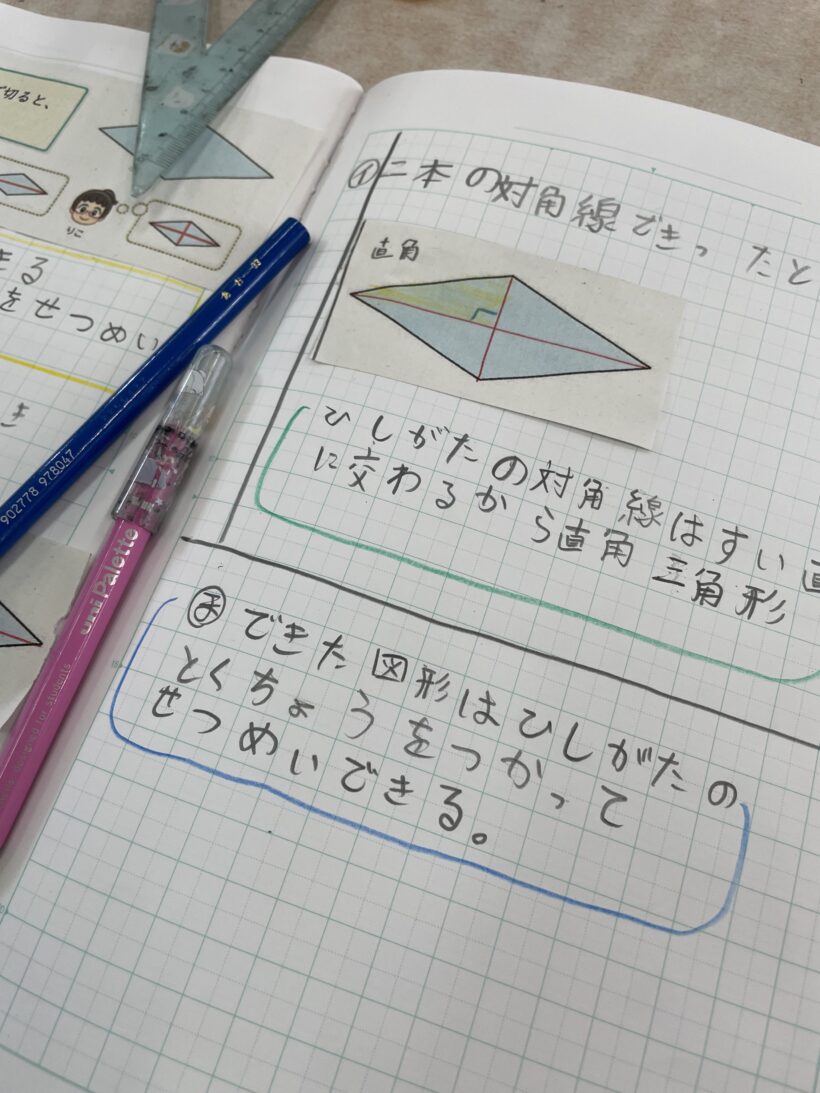 で切ると、
りこ
きる
をせつめい
き
㋑二本の対角線できったと
直角
ひしがたの対角線はすい直
に交わるから直角三角形
㋮できた図形はひしがたの
とくちょうをつかって
せつめいできる。
902778 978047
uni Palette
designed for students